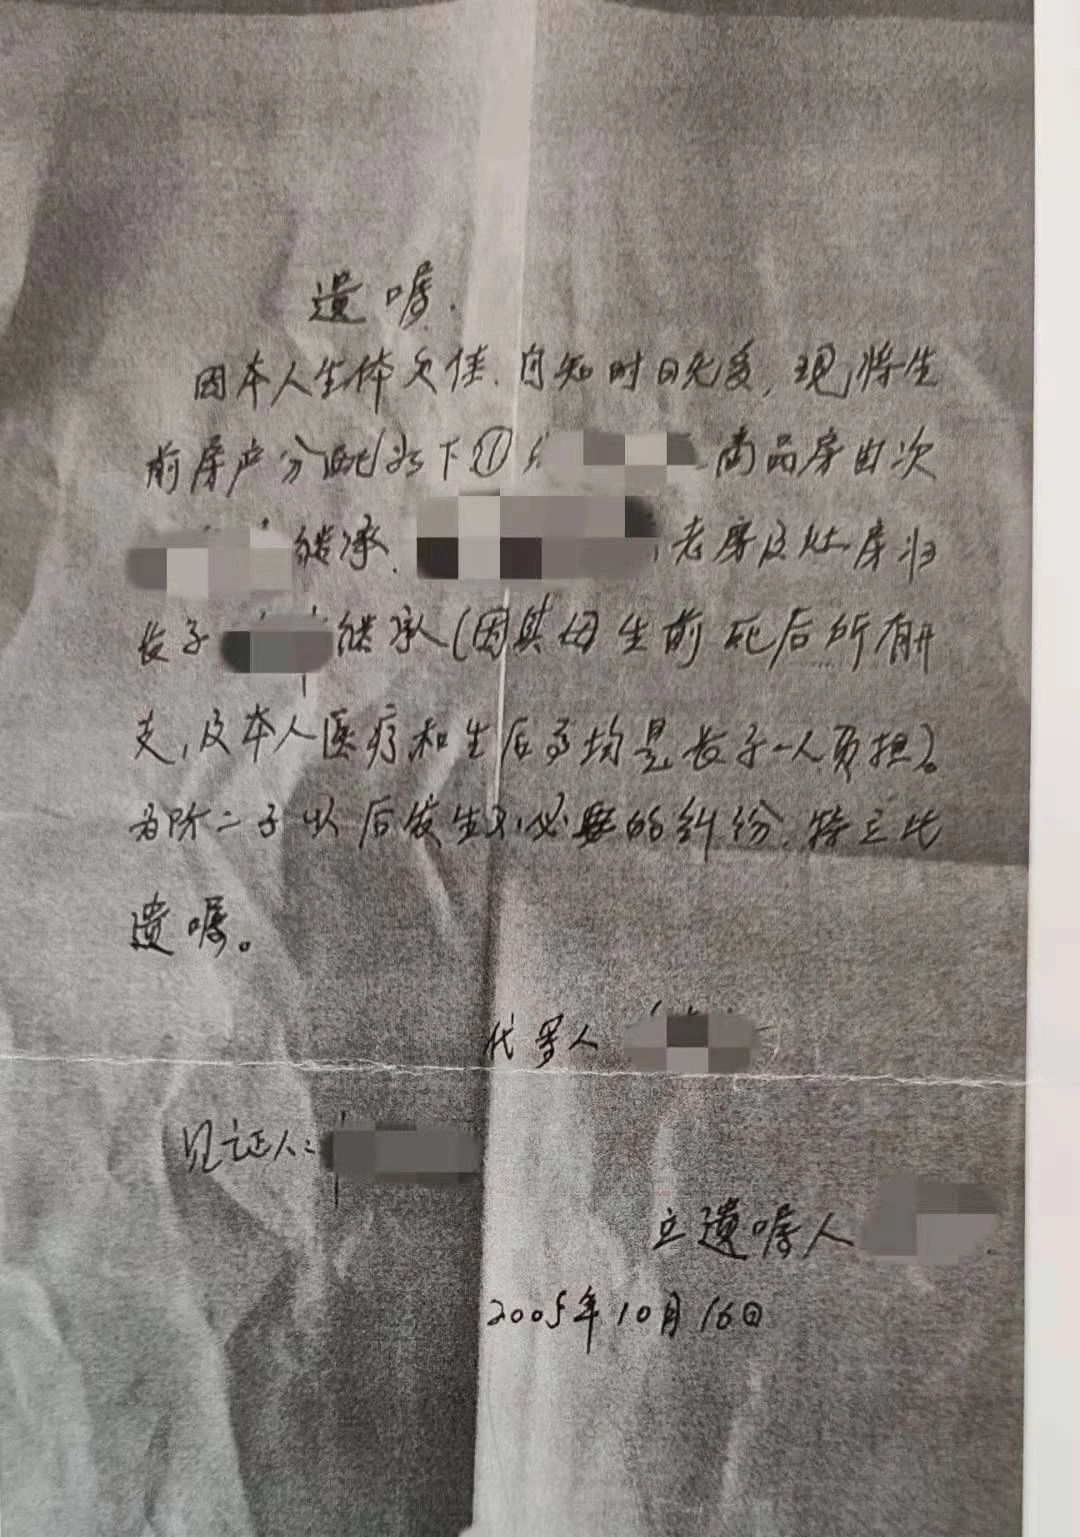 遗嘱.
因本人生体欠佳.自知时日无多,现将生
前房产分配如下① 商品房由次
继承. 老房及灶房归
长子 继承(因其母生前死后所有开
支,及本人医疗和生后事均是长子一人负担)。
为防二子以后发生不必要的纠纷.特立此
遗嘱。
代笔人
见证人:
立遗嘱人
2005年10月16日